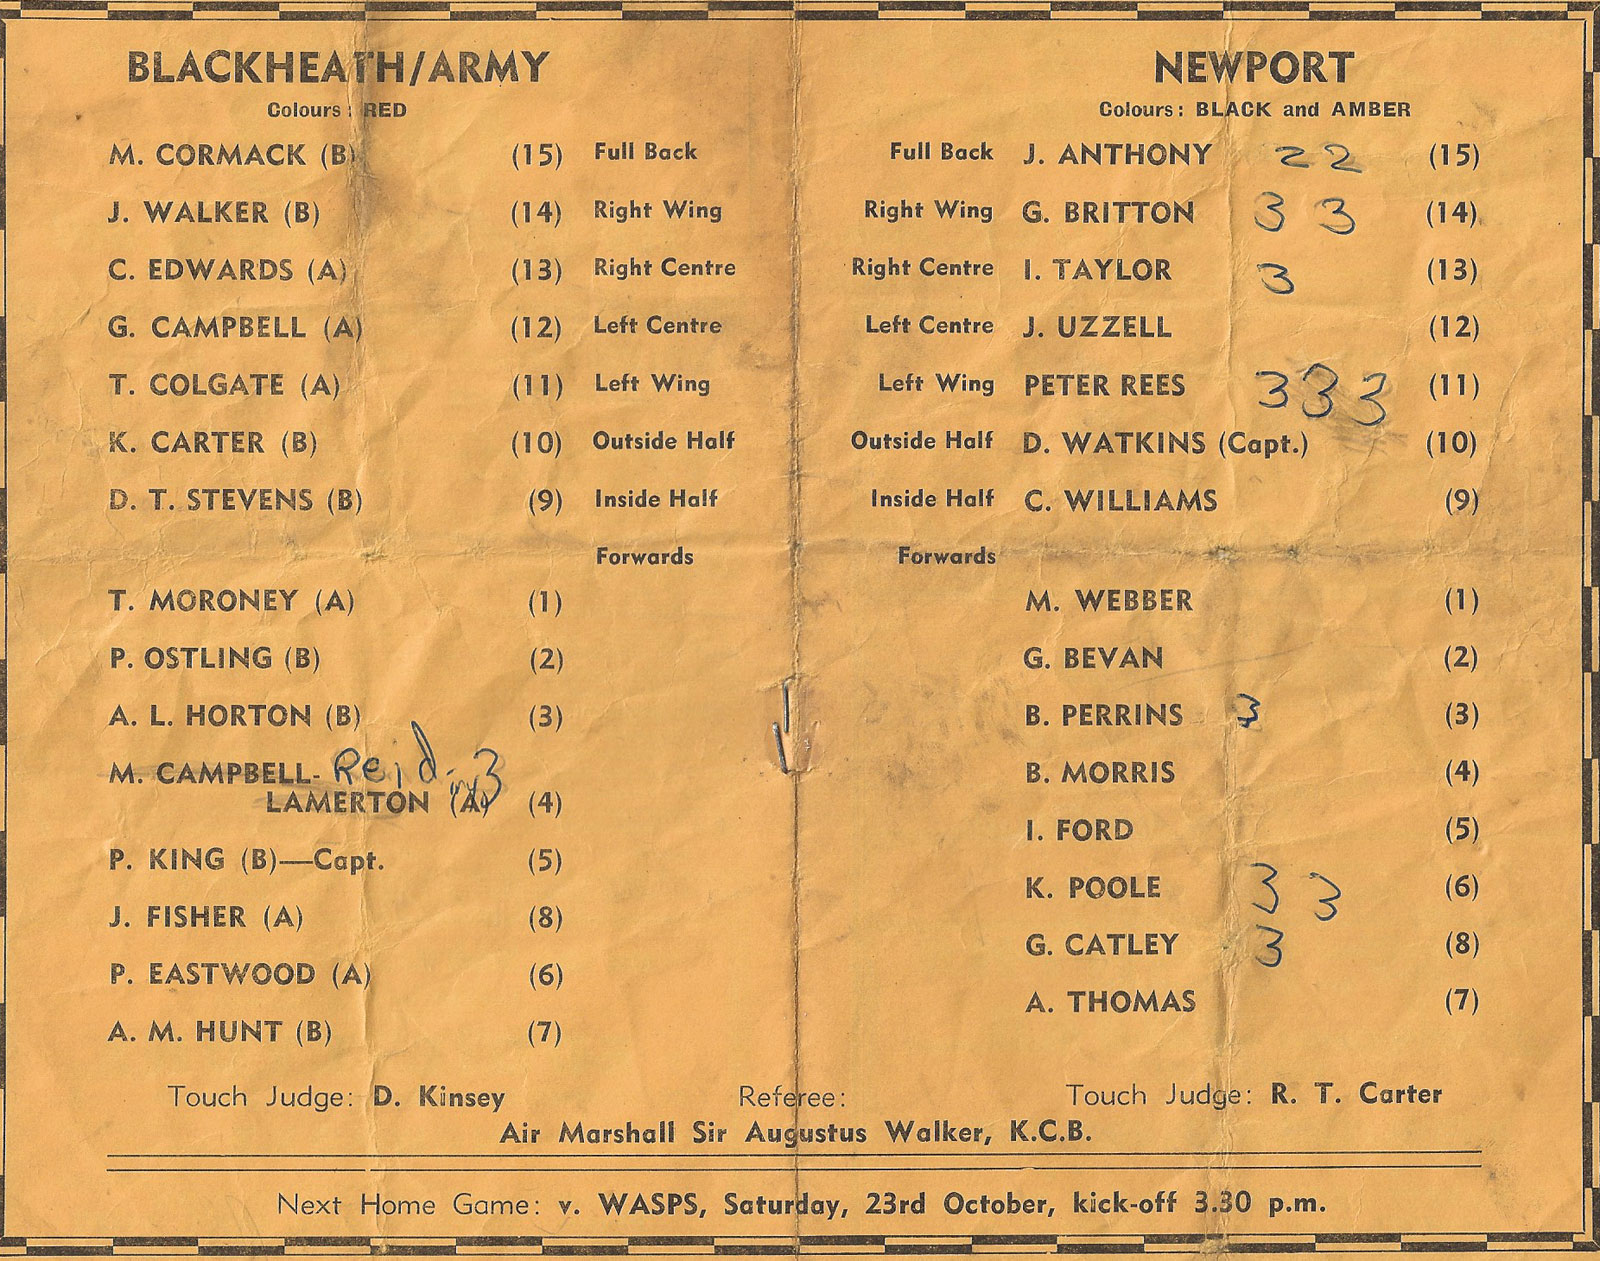 BLACKHEATH/ARMY
Colours: RED
M. CORMACK (B) (15) Full Back
J. WALKER (B) (14) Right Wing
C. EDWARDS (A) (13) Right Centre
G. CAMPBELL (A) (12) Left Centre
T. COLGATE (A) (11) Left Wing
K. CARTER (B) (10) Outside Half
D. T. STEVENS (B) (9) Inside Half
Forwards
T. MORONEY (A) (1)
P. OSTLING (B) (2)
A. L. HORTON (B) (3)
M. CAMPBELL- Reid 3
LAMERTON (A) (4)
P. KING (B)—Capt. (5)
J. FISHER (A) (8)
P. EASTWOOD (A) (6)
A. M. HUNT (B) (7)
NEWPORT
Colours: BLACK and AMBER
Full Back J. ANTHONY 2 2 (15)
Right Wing G. BRITTON 3 3 (14)
Right Centre I. TAYLOR 3 (13)
Left Centre J. UZZELL (12)
Left Wing PETER REES 3 3 3 (11)
Outside Half D. WATKINS (Capt.) (10)
Inside Half C. WILLIAMS (9)
Forwards
M. WEBBER (1)
G. BEVAN (2)
B. PERRINS 3 (3)
B. MORRIS (4)
I. FORD (5)
K. POOLE 3 3 (6)
G. CATLEY 3 (8)
A. THOMAS (7)
Touch Judge: D. Kinsey Referee: Touch Judge: R. T. Carter
Air Marshall Sir Augustus Walker, K.C.B.
Next Home Game: v. WASPS, Saturday, 23rd October, kick-off 3.30 p.m.